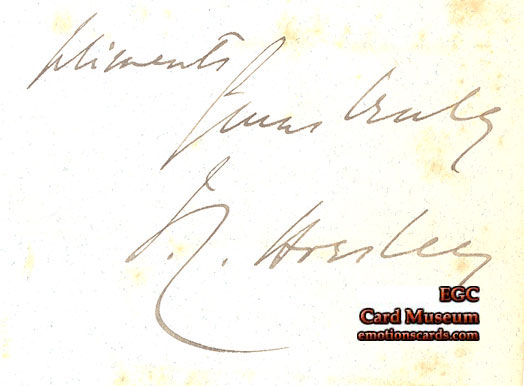 pliments
Yours truly
J.C. Horsley
EGC
Card Museum
emotionscards.com